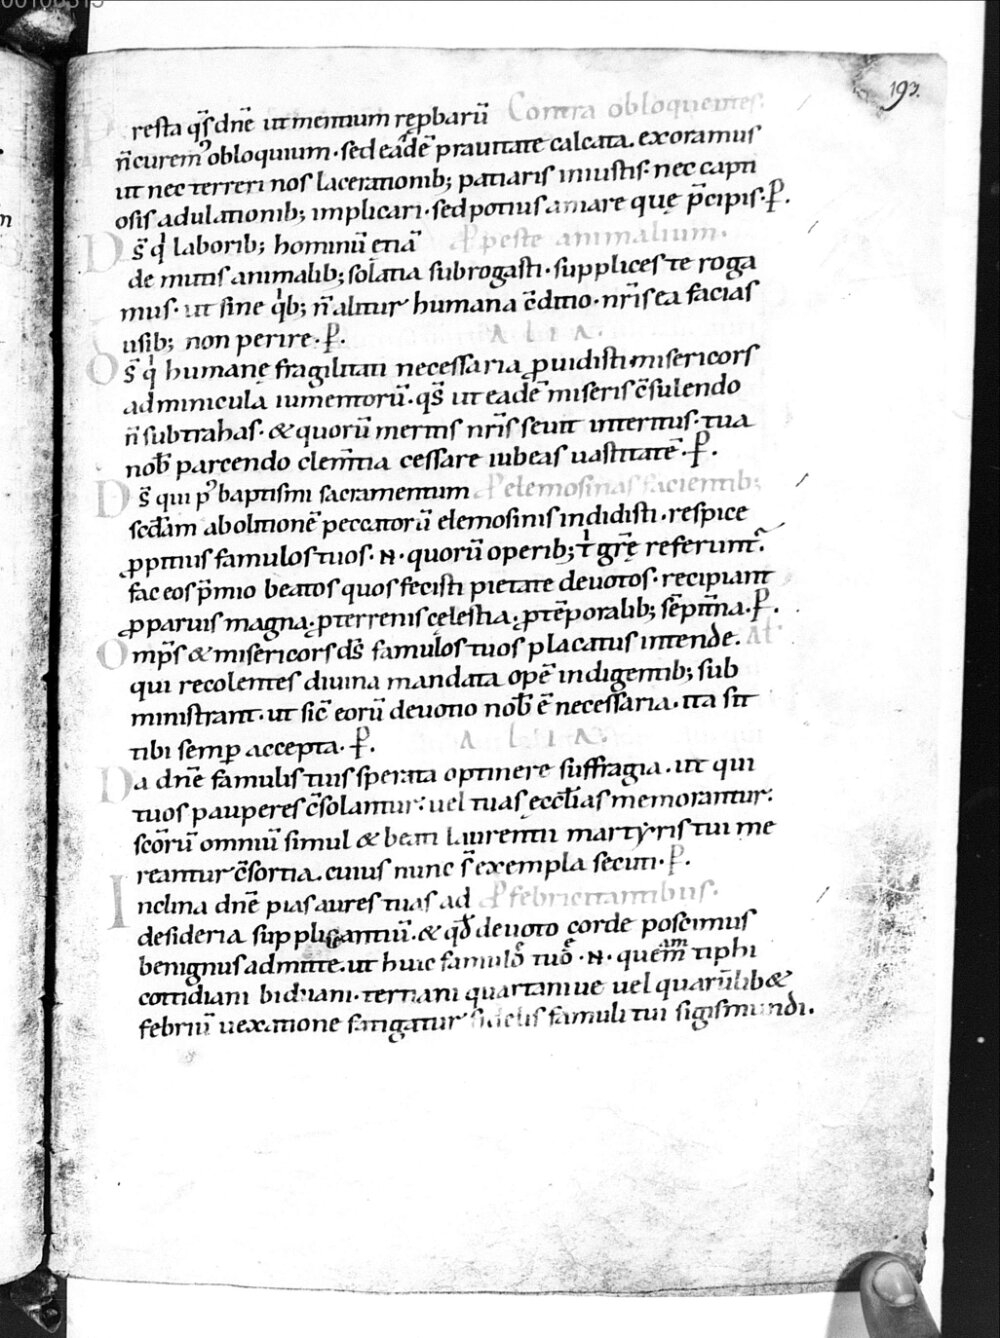 193.
Presta qs̄ dn̄e ut mentium rępbarū Contra obloquentes.
n̄ curem᾿ obloquium· sed eadē prauitate calcata. exoramus
ut nec terreri nos lacerationib; patiaris iniustis· nec capti
osis adulationib; implicari· sed potius amare quę p̄cipis· P̄.
Ds̄ q laborib; hominū etiā P peste animalium.
de mutis animalib; solatia subrogasti· supplices te roga
mus· ut sine qb; n̄ alitur humana c̄ditio· nr̄is ea facias
usib; non perire· P̄. ALIA.
Ds̄ q humanę fragilitati necessaria puidisti misericors
adminicula iumentorū· qs̄ ut eadē miseris c̄sulendo
n̄ subtrahas· & quorū meritis nr̄is seuit interitus· tua
nob̄ parcendo clem̄tia cessare iubeas uastitatē· P̄.
Ds̄ qui p᾿ baptismi sacramentum P elemosinas facientib;
scd̄am abolitionē peccatorū elemosinis indidisti· respice
ppitius famulos tuos· N· quorū operib; t gr̄ę referunt᾿.
fac eos p̄mio beatos quos fecisti pietate deuotos· recipiant
p paruis magna· p terrenis cęlestia· p tēporalib; sēpit̄na· P̄.
Omp̄s & misericors ds̄ famulos tuos placatus intende. Al̄
qui recolentes diuina mandata opē indigentib; sub
ministrant· ut sic̄ eorū deuotio nob̄ ē necessaria· ita sit
tibi semp accepta· P̄. ALIA.
Da dn̄e famulis tuis sperata optinere suffragia. ut qui
tuos pauperes c̄solantur· uel tuas ęccl̄ias memorantur·
scōrū omniū simul & beati Laurentii martyris tui me
reantur c̄sortia. cuius nunc s̄ exempla secuti· P̄.
Inclina dn̄e pias aures tuas ad P febricitantibus.
desideria supplicantiū· & qd̄ deuoto corde poscimus
benignus admitte. ut huic famulo tuo· N· quem am tiphi
cottidiani biduani· tertiani quartaniue uel quarūlib&
febriū uexatione fatigatur fidelis famuli tui sigismundi.